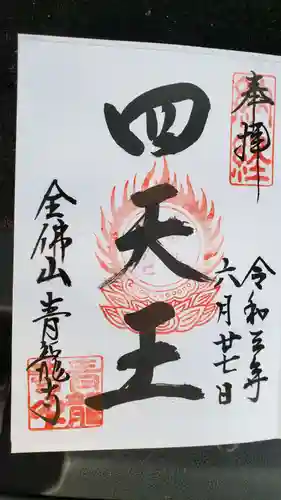 奉拝
令和三年
六月廿七日
四天王
全佛山青龍寺